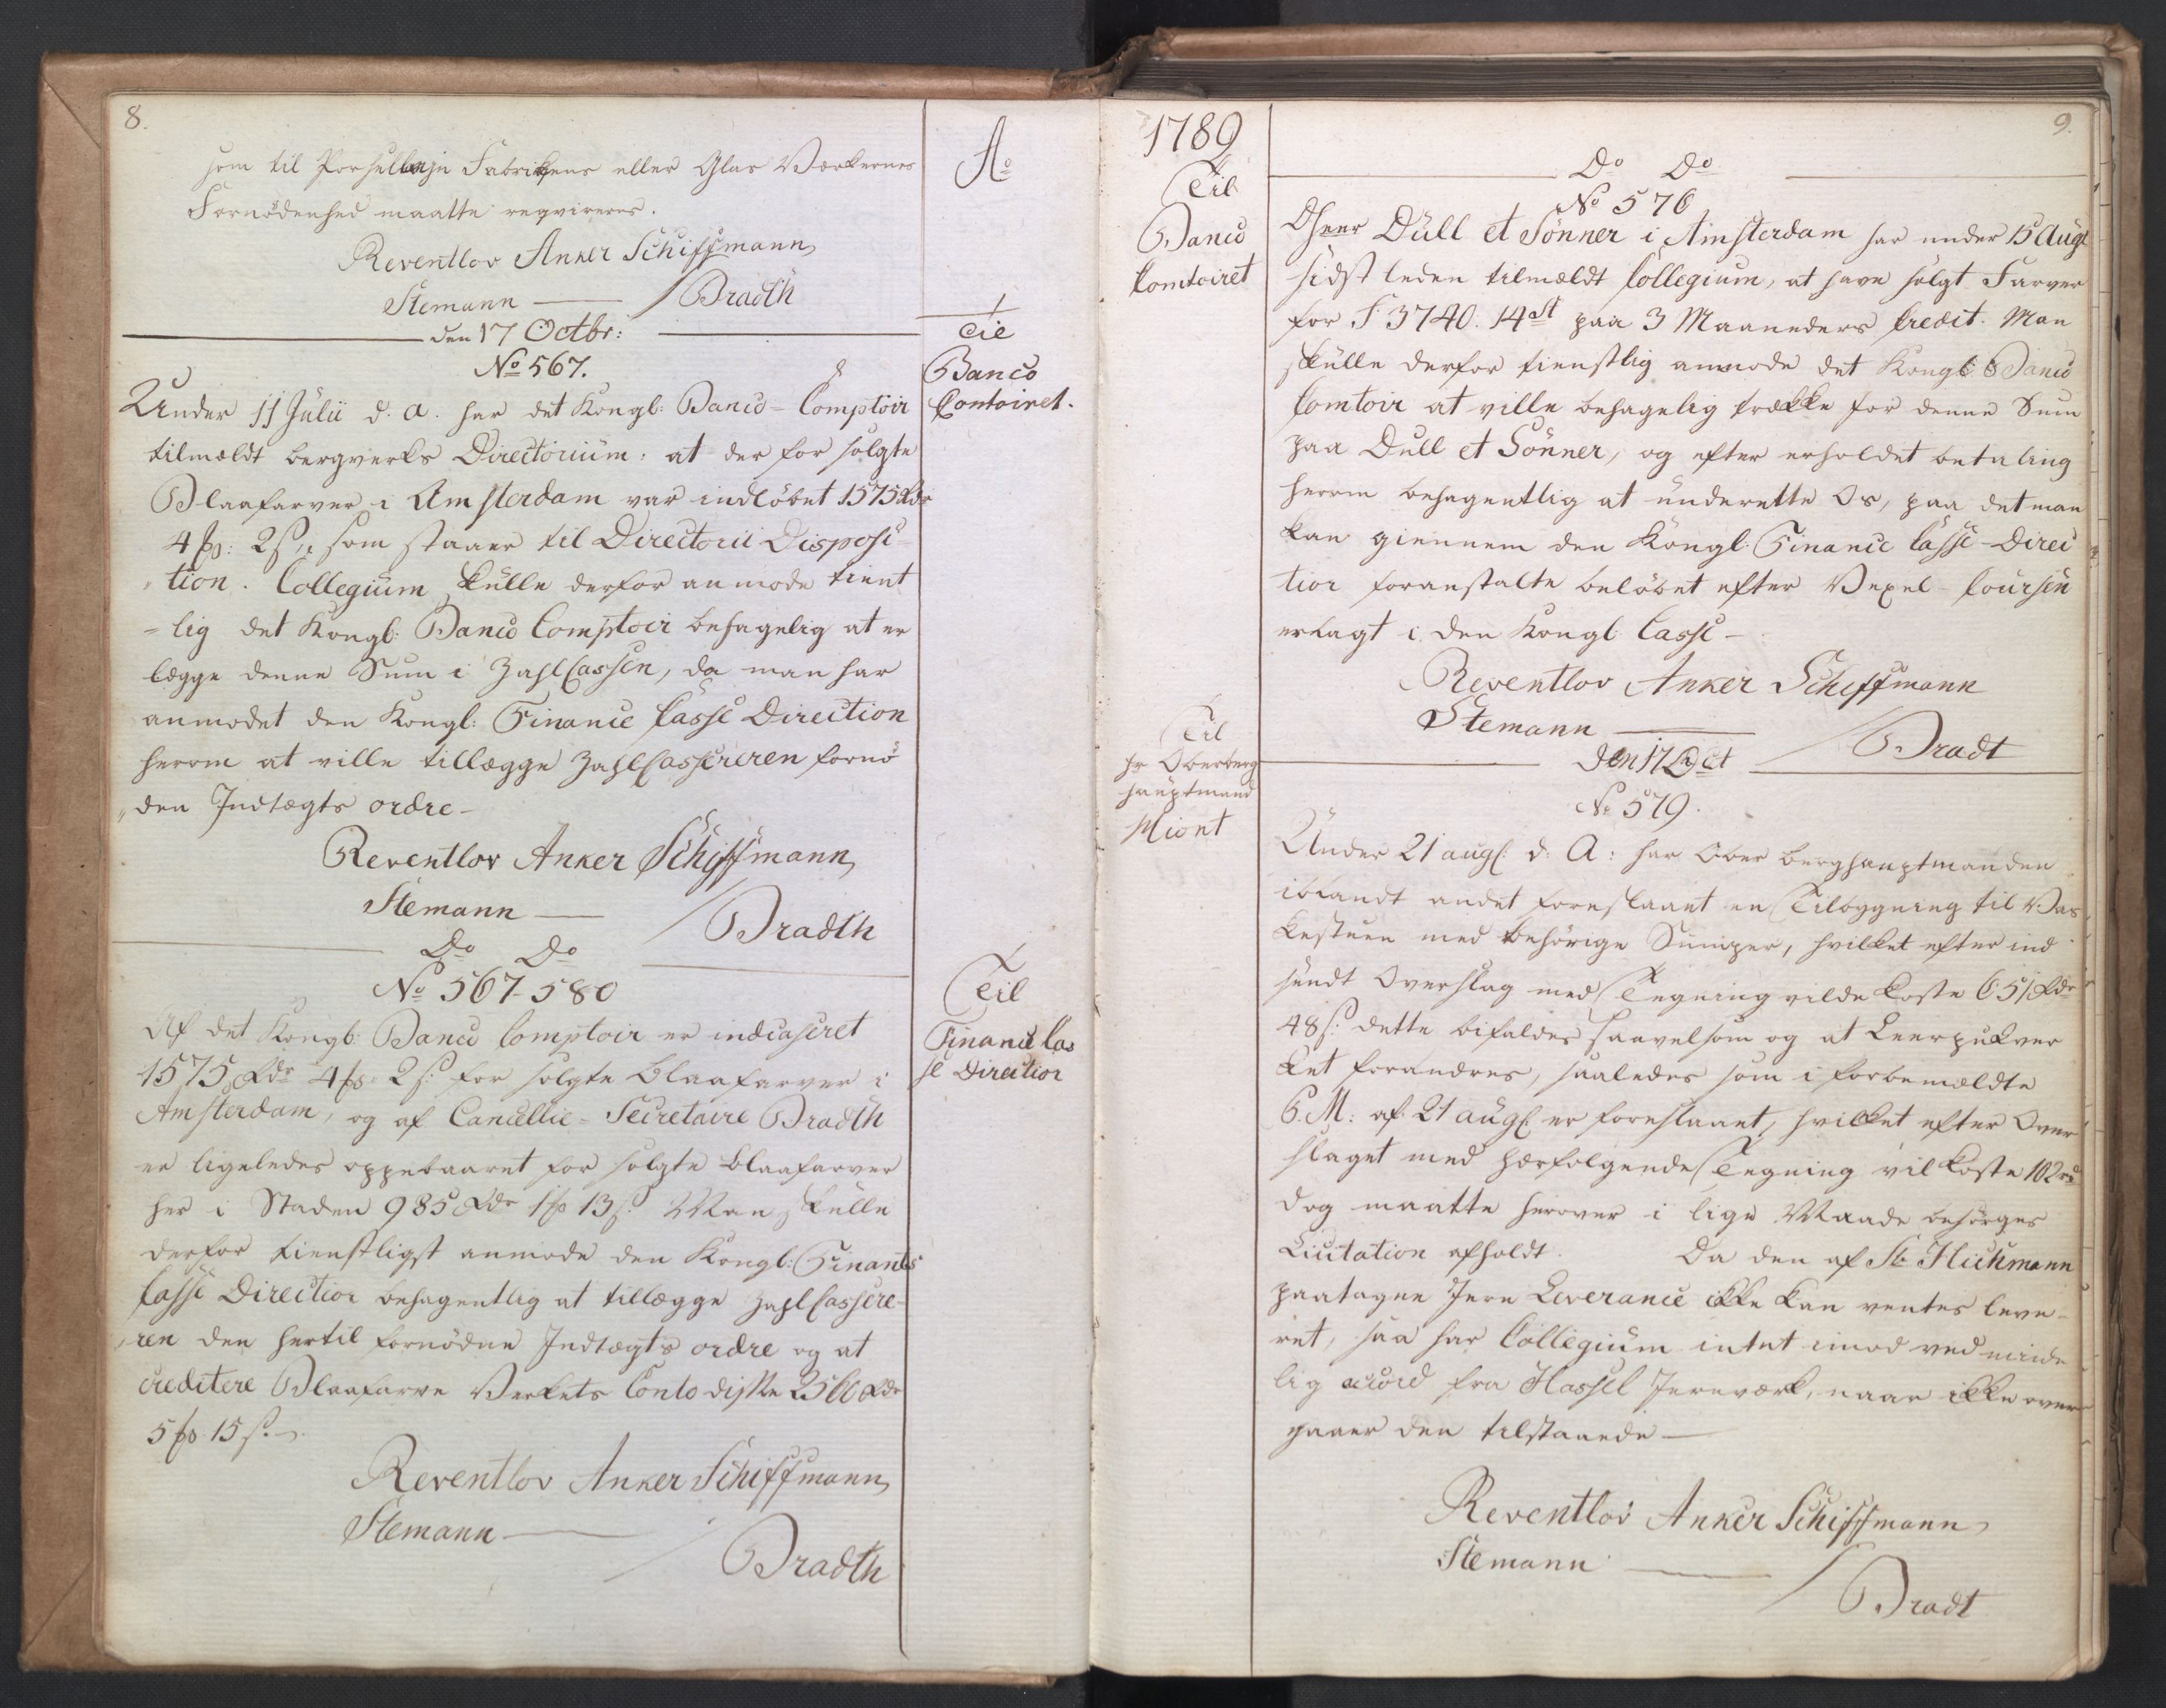 8.
som til Porsellain Fabrikens eller Glas Værkernes
Fornødenhed maatte reqvireres.
Reventlov Anker Schiffmann
Stemann — / Bradth
den 17 Octbr:
No 567.
Under 11 Julii d. a. har det Kongl: Banco-Comptoir
tilmældt bergverks Directorium: at der for solgte
Blaafarver i Amsterdam var indløbet 1575 Rdr
4 ß: 2 s, som staaer til Directorii Disposi
tion. Collegium skulle derfor anmode tienst
-lig det Kongl: Banco Comptoir behagelig at er
lægge denne Sum i ZahlCassen, da man har
anmodet den Kongl: Finance Casse Direction
herom at ville tillægge ZahlCassereren fornø
den Indtægts ordre-
Reventlov Anker Schiffmann
Stemann — / Bradth
Do Do
No 567-580
Af det Kongl: Banco Comptoir er indcaseret
1575 Rdr 4 ß 2 s: for solgte blaafarver i
Amsterdam, og af Cancellie-Secretaire Bradth
er ligeledes oppebaaret for solgte blaafarver
her i Staden 985 Rdr 1 ß 13 s. Man skulle
derfor tienstligst anmode den Kongl: Finants
Casse Direction behagentlig at tillægge ZahlCassere-
ren den hertil fornødne Indtægts ordre og at
creditere Blaafarve Verkets Conto disse 2560 Rdr
5 ß 15 s.
Reventlov Anker Schiffmann
Stemann — / Bradth
Ao
Til
Banco
Contoiret.
Til
Finance Cas
se Direction
1789
Til
Banco
Comtoiret
Til
hr Oberberg
hauptmand
Hiort
9.
Do Do
No 576
Dhrr Düll et Sønner i Amsterdam har under 15 Augl
sidst leden tilmældt Collegium, at have solgt Farver
for F 3740. 14 st paa 3 Maaneders Credit. Man
skulle derfor tienstlig anmode det Kongl: Banco
Comtoir at ville behagelig trække for denne Sum
paa Dull et Sønner, og efter erholdet betaling
herom behagentlig at underrette Os, paa det man
kan giennem den Kongl: Finance Casse-Direc
tion foranstalte beløbet efter Vexel-Coursen
erlagt i den Kongl Casse-
Reventlov Anker Schiffmann
Stemann — / Bradt
Den 17 Oct
No 579.
Under 21 augl: d: A: har Ober berghauptmanden
iblandt andet foreslaaet en Tilbygning til Vas
kestuen med behørige Sumper, hvilket efter ind
sendt Overslag med Tegning vilde koste 651 Rdr
48 s: dette bifaldes saavelsom og at Leerpukver
ket forandres, saaledes som i forbemældte
P.M: af 21 augl: er foreslaaet, hvilket efter Over
slaget med herfølgende Tegning vil koste 102 rd
dog maatte herover i lige Maade besørges
Licitation afholdt. Da den af Sr Hichmann
paatagne Jern Leverance ikke kan ventes leve-
ret, saa har Collegium intet imod ved minde
lig accord fra Hassel Jernværk, naar ikke over
gaaer den tilstaaede —
Reventlov Anker Schiffmann
Stemann — / Bradt